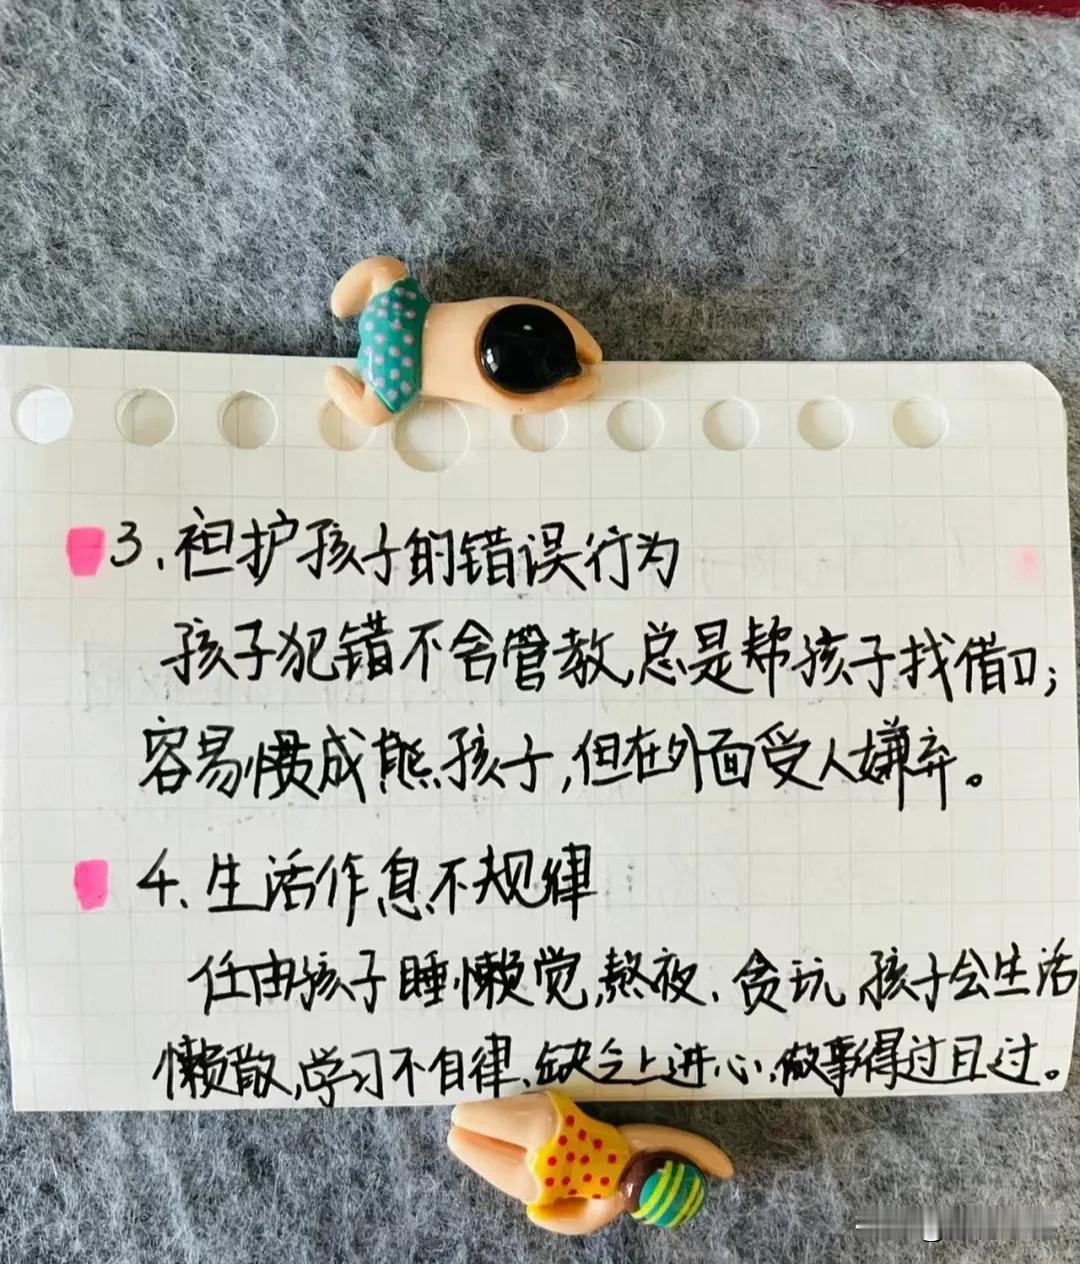 3.袒护孩子的错误行为
孩子犯错不舍管教,总是帮孩子找借口;
容易惯成熊孩子,但在外面受人嫌弃。
4.生活作息不规律
任由孩子睡懒觉,熬夜、贪玩,孩子会生活
懒散,学习不自律、缺乏上进心,做事得过且过。